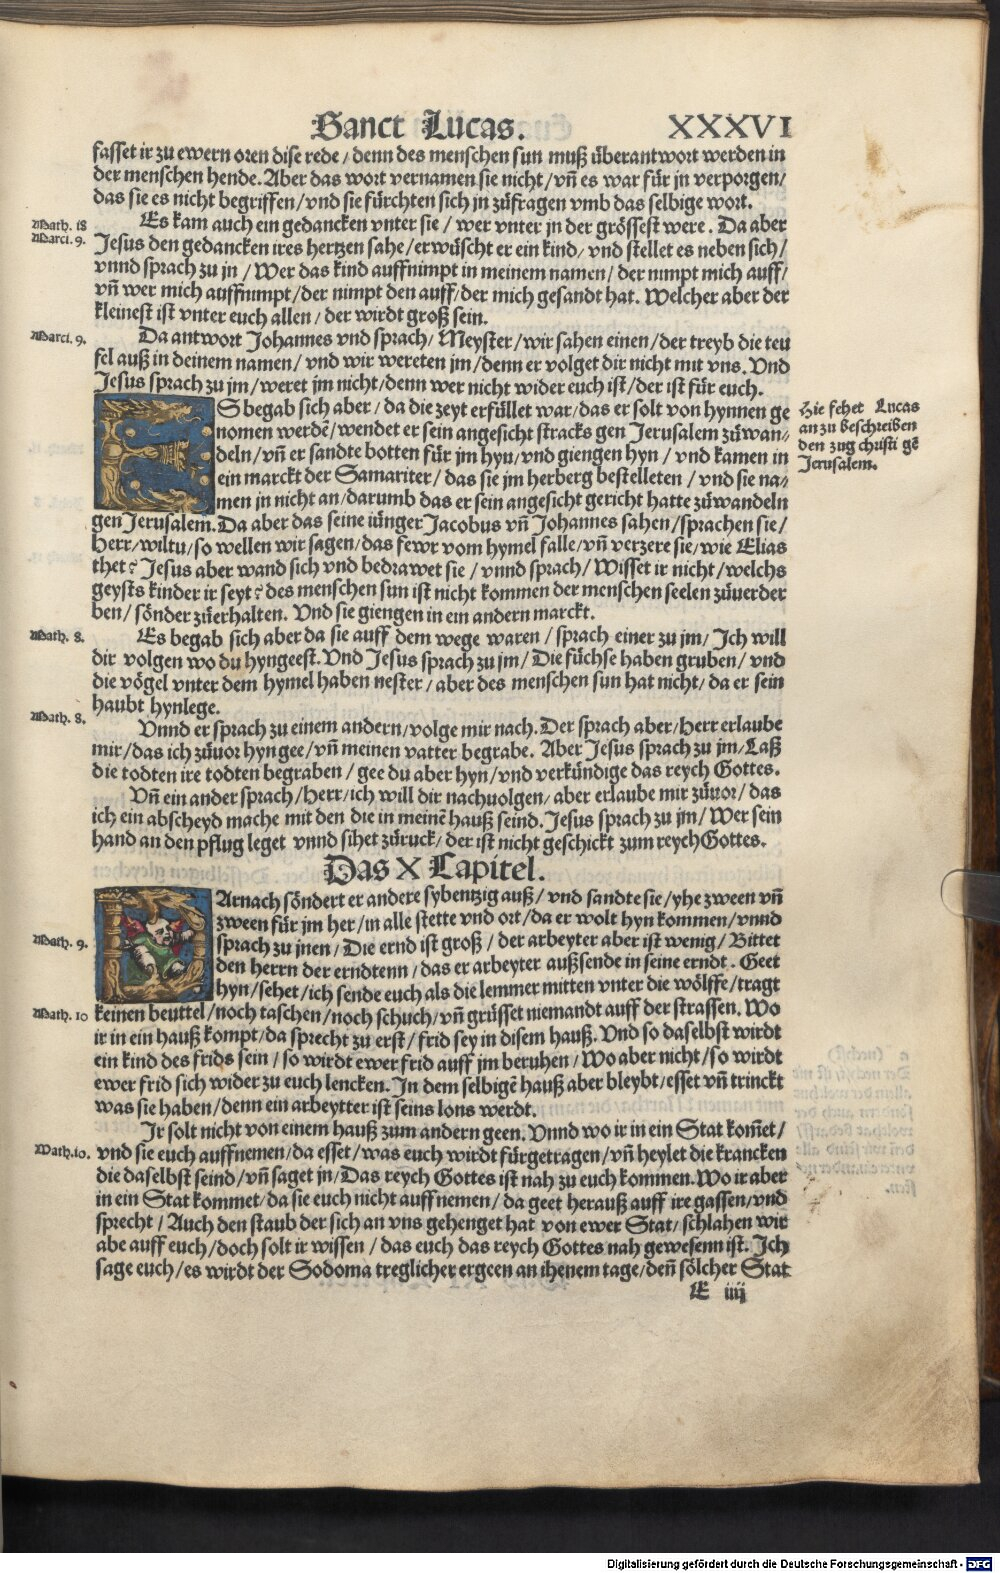 Sanct Lucas. XXXVI
fasset ir zu ewern oren dise rede / denn des menschen sun muß überantwort werden in
der menschen hende. Aber das wort vernamen sie nicht / vn̄ es war für jn verporgen /
das sie es nicht begriffen / vnd sie fürchten sich jn zůfragen vmb das selbige wort.
Math. 18
Marci. 9.
Es kam auch ein gedancken vnter sie / wer vnter jn der grössest were. Da aber
Jesus den gedancken ires hertzen sahe / erwüscht er ein kind / vnd stellet es neben sich /
vnnd sprach zu jn / Wer das kind auffnimpt in meinem namen / der nimpt mich auff /
vn̄ wer mich auffnimpt / der nimpt den auff / der mich gesandt hat. Welcher aber der
kleinest ist vnter euch allen / der wirdt groß sein.
Marci. 9.
Da antwort Johannes vnd sprach / Meyster / wir sahen einen / der treyb die teu
fel auß in deinem namen / vnd wir wereten jm / denn er volget dir nicht mit vns. Vnd
Jesus sprach zu jm / weret jm nicht / denn wer nicht wider euch ist / der ist für euch.
ES begab sich aber / da die zeyt erfüllet war / das er solt von hynnen ge
nomen werdē / wendet er sein angesicht stracks gen Jerusalem zůwan /
deln / vn̄ er sandte botten für jm hyn / vnd giengen hyn / vnd kamen in
ein marckt der Samariter / das sie jm herberg bestelleten / vnd sie na /
men jn nicht an / darumb das er sein angesicht gericht hatte zůwandeln
gen Jerusalem. Da aber das seine iünger Jacobus vn̄ Johannes sahen / sprachen sie /
Herr / wiltu / so wellen wir sagen / das fewr vom hymel falle / vn̄ verzere sie / wie Elias
thet? Jesus aber wand sich vnd bedrawet sie / vnnd sprach / Wisset ir nicht / welchs
geysts kinder ir seyt? des menschen sun ist nicht kommen der menschen seelen zůuerder
ben / sönder zůerhalten. Vnd sie giengen in ein andern marckt.
Hie fehet Lucas
an zu beschreiben
den zug christi gē
Jerusalem.
Math. 8.
Es begab sich aber da sie auff dem wege waren / sprach einer zu jm / Ich will
dir volgen wo du hyngeest. Vnd Jesus sprach zu jm / Die füchse haben gruben / vnd
die vögel vnter dem hymel haben nester / aber des menschen sun hat nicht / da er sein
haubt hynlege.
Math. 8.
Vnnd er sprach zu einem andern / volge mir nach. Der sprach aber / Herr erlaube
mir / das ich zůuor hyngee / vn̄ meinen vatter begrabe. Aber Jesus sprach zu jm / Laß
die todten ire todten begraben / gee du aber hyn / vnd verkündige das reych Gottes.
Vn̄ ein ander sprach / Herr / ich will dir nachuolgen / aber erlaube mir zůuor / das
ich ein abscheyd mache mit den die in meinē hauß seind. Jesus sprach zu jm / Wer sein
hand an den pflug leget vnnd sihet zůruck / der ist nicht geschickt zum reych Gottes.
Das X Capitel.
DArnach söndert er andere sybentzig auß / vnd sandte sie / yhe zween vn̄
zween für jm her / in alle stette vnd ort / da er wolt hyn kommen / vnnd
Math. 9.
sprach zu jnen / Die ernd ist groß / der arbeyter aber ist wenig / Bittet
den herrn der erndtenn / das er arbeyter außsende in seine erndt. Geet
hyn / sehet / ich sende euch als die lemmer mitten vnter die wölffe / tragt
Math. 10
keinen beuttel / noch taschen / noch schuch / vn̄ grüsset niemandt auff der strassen. Wo
ir in ein hauß kompt / da sprecht zu erst / frid sey in disem hauß. Vnd so daselbst wirdt
ein kind des frids sein / so wirdt ewer frid auff jm beruhen / Wo aber nicht / so wirdt
ewer frid sich wider zu euch lencken. In dem selbigē hauß aber bleybt / esset vn̄ trinckt
was sie haben / denn ein arbeytter ist seins lons werdt.
Ir solt nicht von einem hauß zum andern geen. Vnnd wo ir in ein Stat kom̄et /
Math. 10.
vnd sie euch auffnemen / da esset / was euch wirdt fürgetragen / vn̄ heylet die krancken
die daselbst seind / vn̄ saget jn / Das reych Gottes ist nah zu euch kommen. Wo ir aber
in ein Stat kommet / da sie euch nicht auff nemen / da geet herauß auff ire gassen / vnd
sprecht / Auch den staub der sich an vns gehenget hat von ewer Stat / schlahen wir
abe auff euch / doch solt ir wissen / das euch das reych Gottes nah gewesenn ist. Ich
sage euch / es wirdt der Sodoma treglicher ergeen an ihenem tage / den̄ sölcher Stat
E iiij
Digitalisierung gefördert durch die Deutsche Forschungsgemeinschaft - DFG